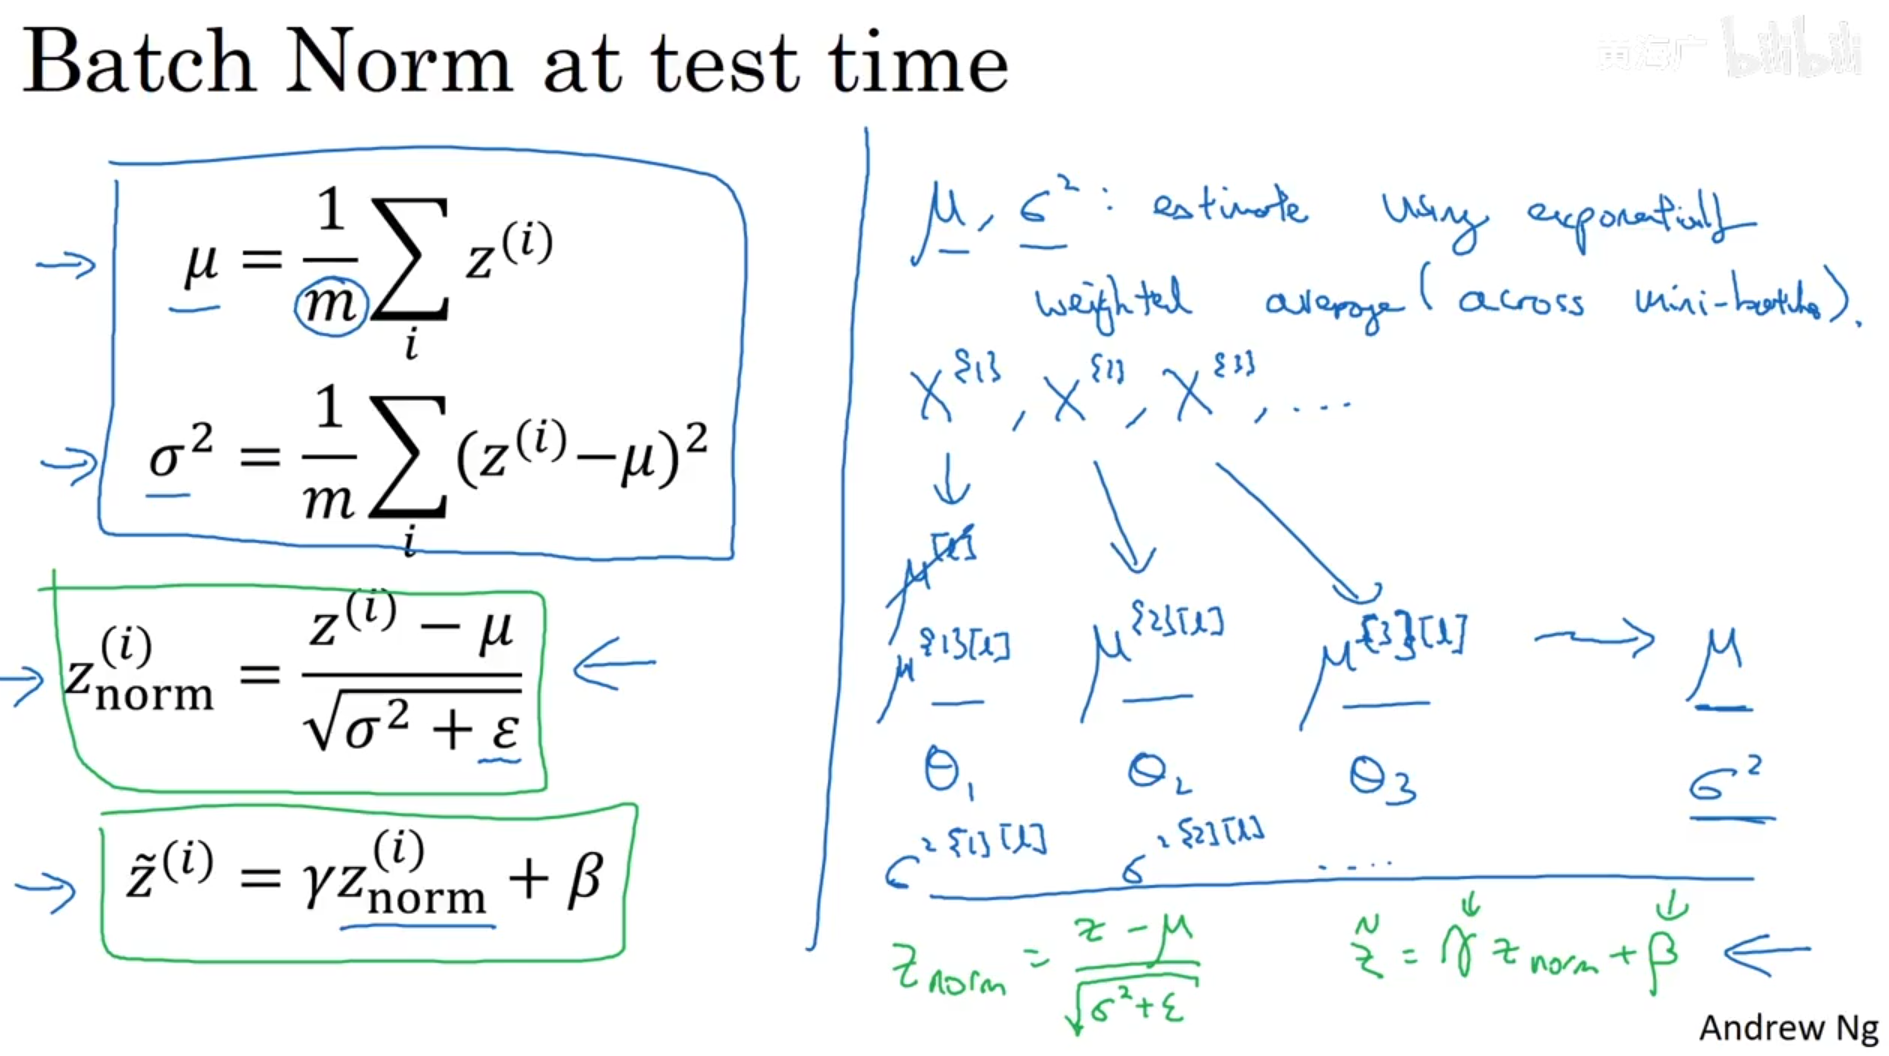 Batch Norm at test time
黄海广 bilibili
μ = 1/m ∑_i z^(i)
σ² = 1/m ∑_i (z^(i) − μ)²
z_norm^(i) = (z^(i) − μ) / √(σ² + ε)
z̃^(i) = γz_norm^(i) + β
μ, σ² : estimate using exponentially
weighted average (across mini-batches).
X^{1}, X^{2}, X^{3}, ....
μ^[l]
μ^{1}[l] μ^{2}[l] μ^{3}[l] → μ
θ₁ θ₂ θ₃ σ²
σ²^{1}[l] σ²^{2}[l] ....
z_norm = (z − μ) / √(σ² + ε) z̃ = γ z_norm + β
Andrew Ng